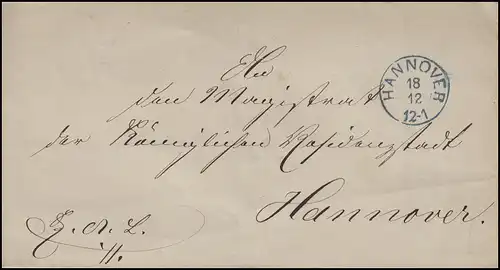 An
den Magistrat
der Königlichen Residenzstadt
Hannover.
HANNOVER
18
12
12-1